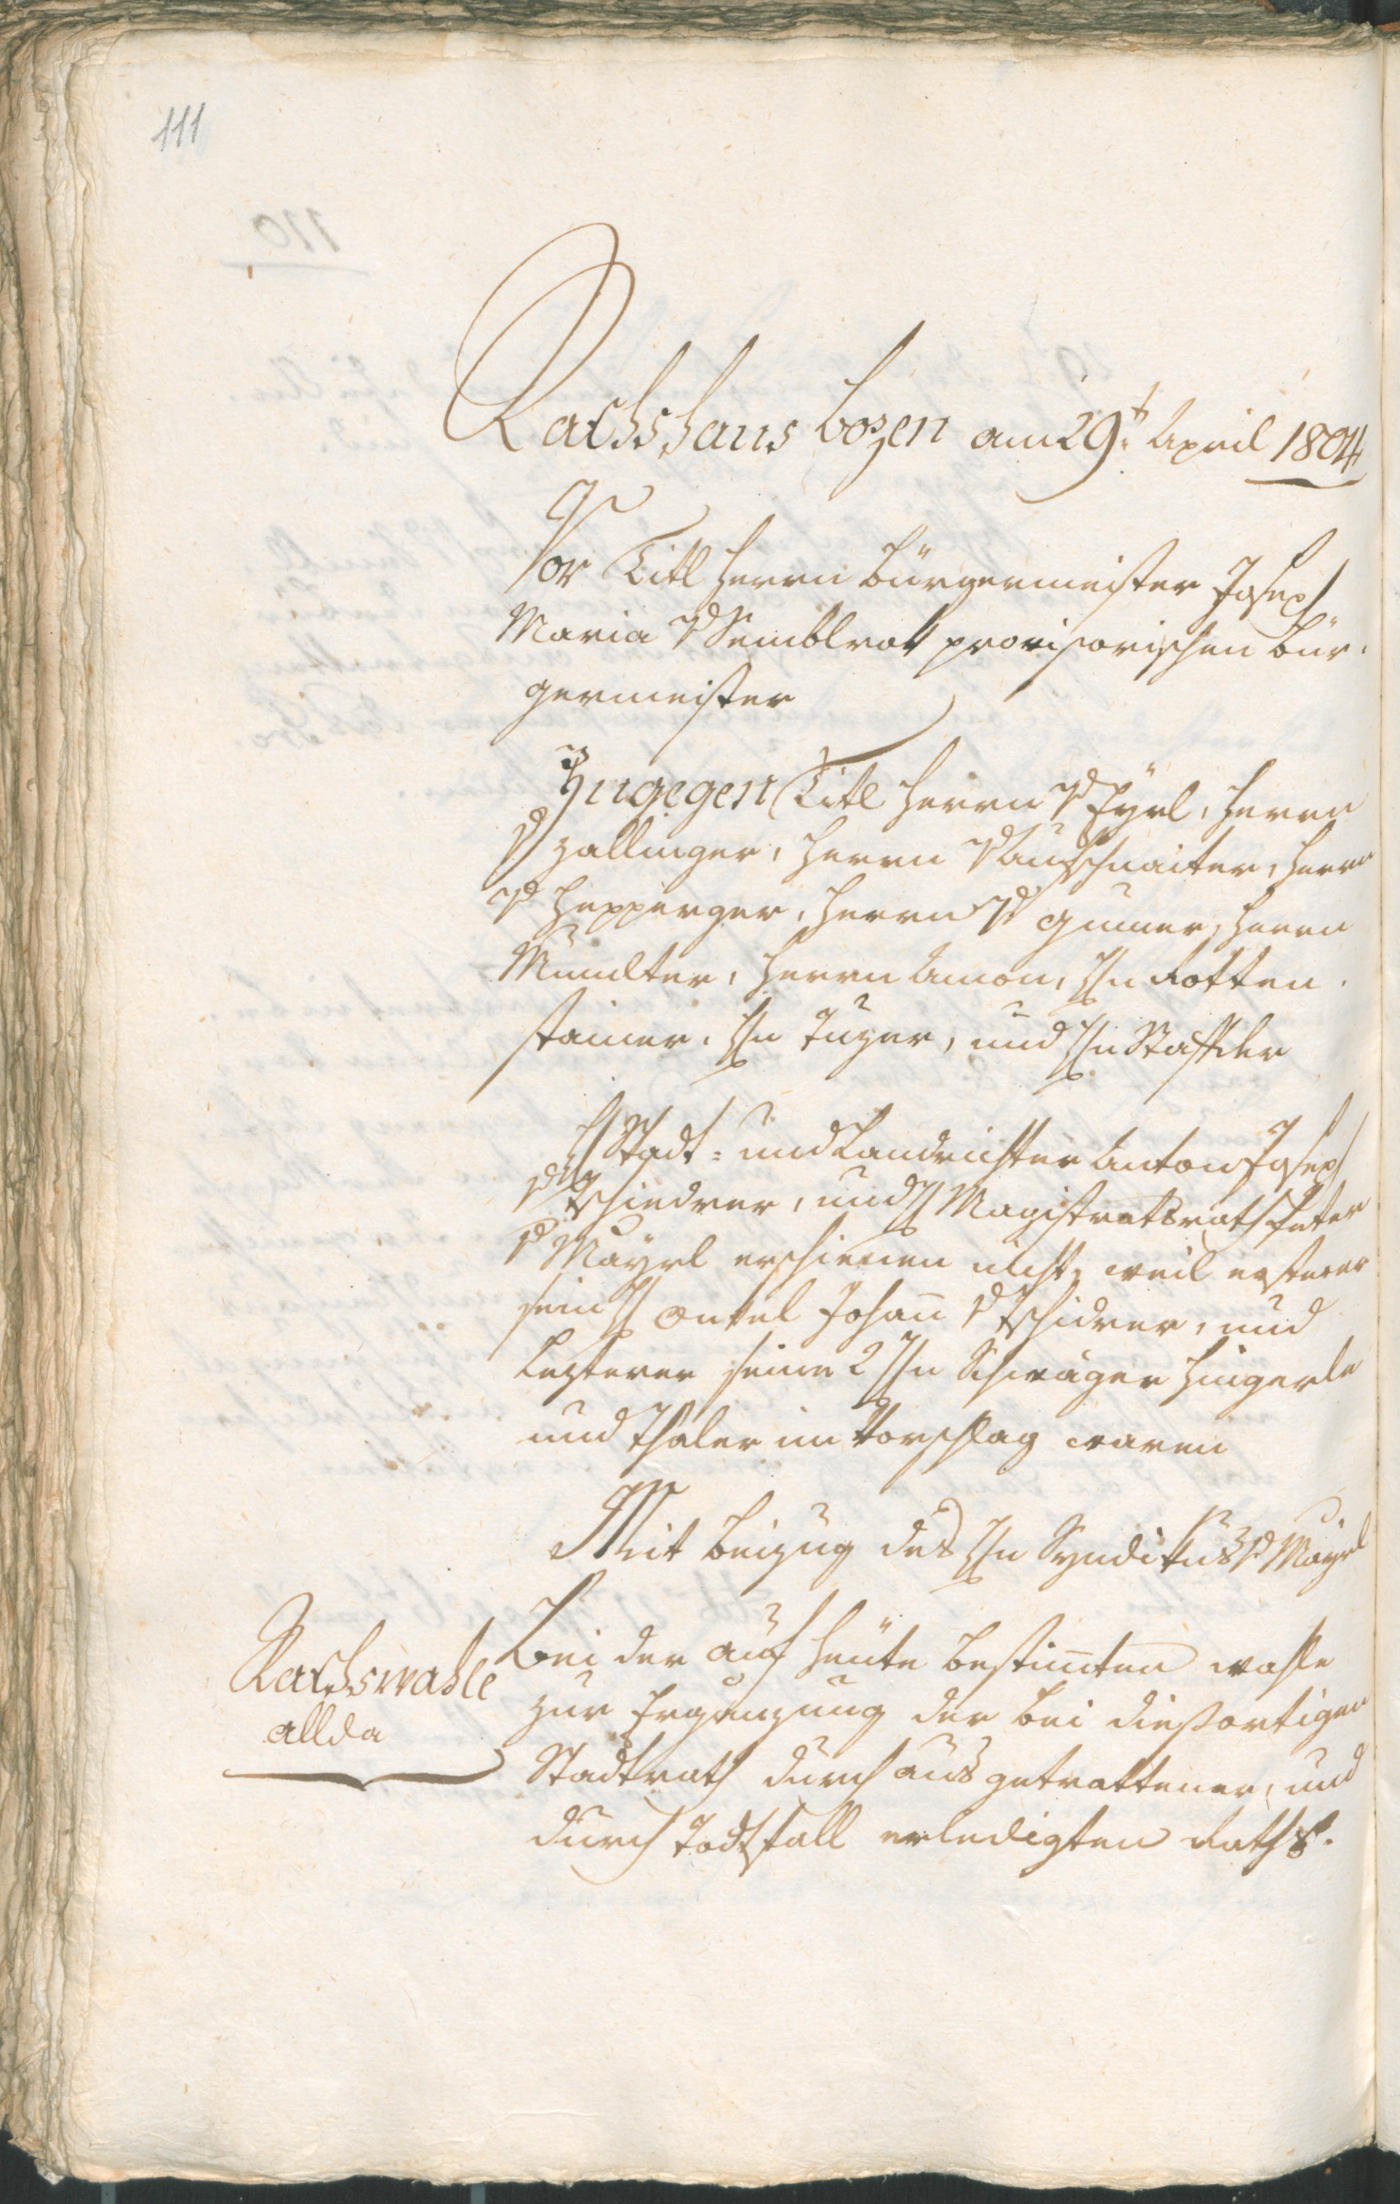 111
Rathshaus bozen am 29t April 1804
Vor Titl herrn bürgermeister Joseph
Maria v Remblrot provisorischen bür-
germeister
Zugegen Titl herrn v Eyrl, herrn
v zallinger, herrn v Aufschnaiter, herrn
v hepperger, herrn v gumer, herrn
Mumelter, herrn Amon, Hn Rotten-
steiner, Hn Tuzer, und Hn Staffler
H Stadt- und Landrichter Anton Joseph
v Tschiedrer, und H Magistratsrath Peter
v Mayrl erschienen nicht, weil ersterer
sein H Onkel Johan v Tschidrer, und
Lezterer seine 2 Hn Schwäger hingerle
und Thaler im Vorschlag waren
Mit beizug des Hn Syndikus v Mayrl
Rathswahle
allda
Bei der auf heute bestimten wahle
zur Ergänzung der bei dießortigen
Stadtrath durch ausgetrettener, und
durch Todtfall erledigten Raths-